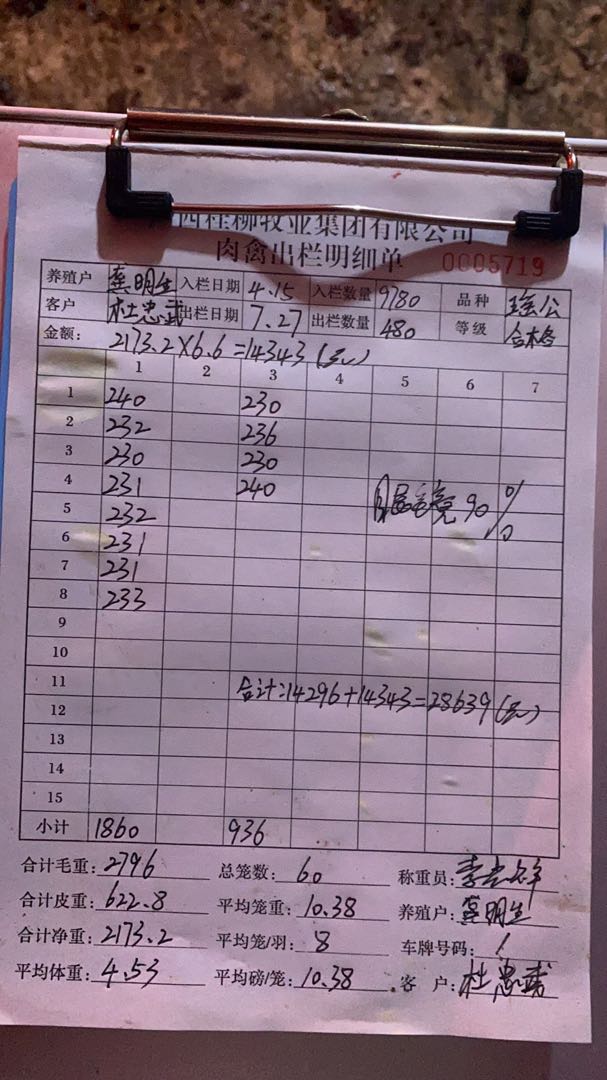 西桂柳牧业集团有限公司
肉禽出栏明细单 0005719
养殖户 龚明生 入栏日期 4.15 入栏数量 9780 品种 瑶公
客户 杜忠武 出栏日期 7.27 出栏数量 480 等级 合格
金额: 2173.2×6.6=14343(元)
1 2 3 4 5 6 7
1 240 230
2 232 236
3 230 230
4 231 240 毛亮90%
5 232
6 231
7 231
8 233
9
10
11 合计:14296+14343=28639(元)
12
13
14
15
小计 1860 936
合计毛重: 2796 总笼数: 60 称重员:
合计皮重: 622.8 平均笼重: 10.38 养殖户: 龚明生
合计净重: 2173.2 平均笼/羽: 8 车牌号码: /
平均体重: 4.53 平均磅/笼: 10.38 客 户: 杜忠武